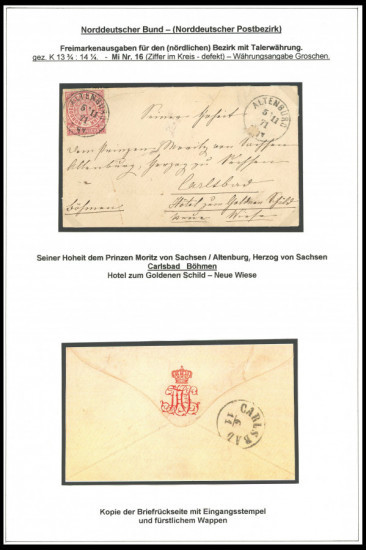 Norddeutscher Bund – (Norddeutscher Postbezirk)
Freimarkenausgaben für den (nördlichen) Bezirk mit Talerwährung.
gez. K 13 ¾ : 14 ¼. - Mi Nr. 16 (Ziffer im Kreis - defekt) – Währungsangabe Groschen.
ALTENBURG
5 11
71
ALTENBURG
5 11
71
Seiner Hoheit
dem Prinzen Moritz von Sachsen
Altenburg, Herzog zu Sachsen
Carlsbad
Böhmen.
Hôtel zum Goldnen Schild
neue Wiese
Seiner Hoheit dem Prinzen Moritz von Sachsen / Altenburg, Herzog von Sachsen
Carlsbad Böhmen
Hotel zum Goldenen Schild – Neue Wiese
CARLSBAD
Kopie der Briefrückseite mit Eingangsstempel
und fürstlichem Wappen